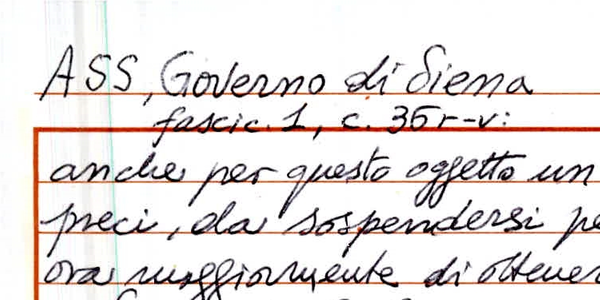 ASS, Governo di Siena
fascic. 1, c. 35r-v:
anche per questo oggetto un
preci, da sospendersi pe
ora maggiormente di ottener